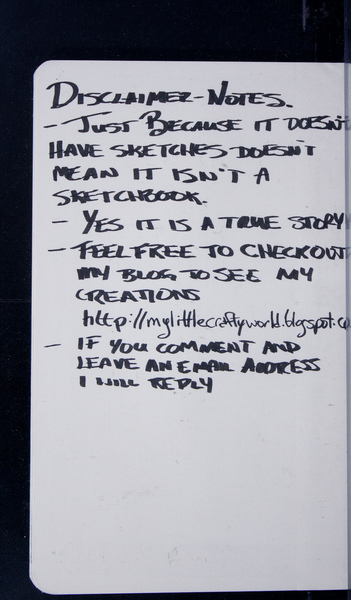 DISCLAIMER-NOTES.
- JUST BECAUSE IT DOESN'T
HAVE SKETCHES DOESN'T
MEAN IT ISN'T A
SKETCHBOOK.
- YES IT IS A TRUE STORY
- FEEL FREE TO CHECKOUT
MY BLOG TO SEE MY
CREATIONS
http://mylittlecraftyworld.blogspot.co
- IF YOU COMMENT AND
LEAVE AN EMAIL ADDRESS
I WILL REPLY